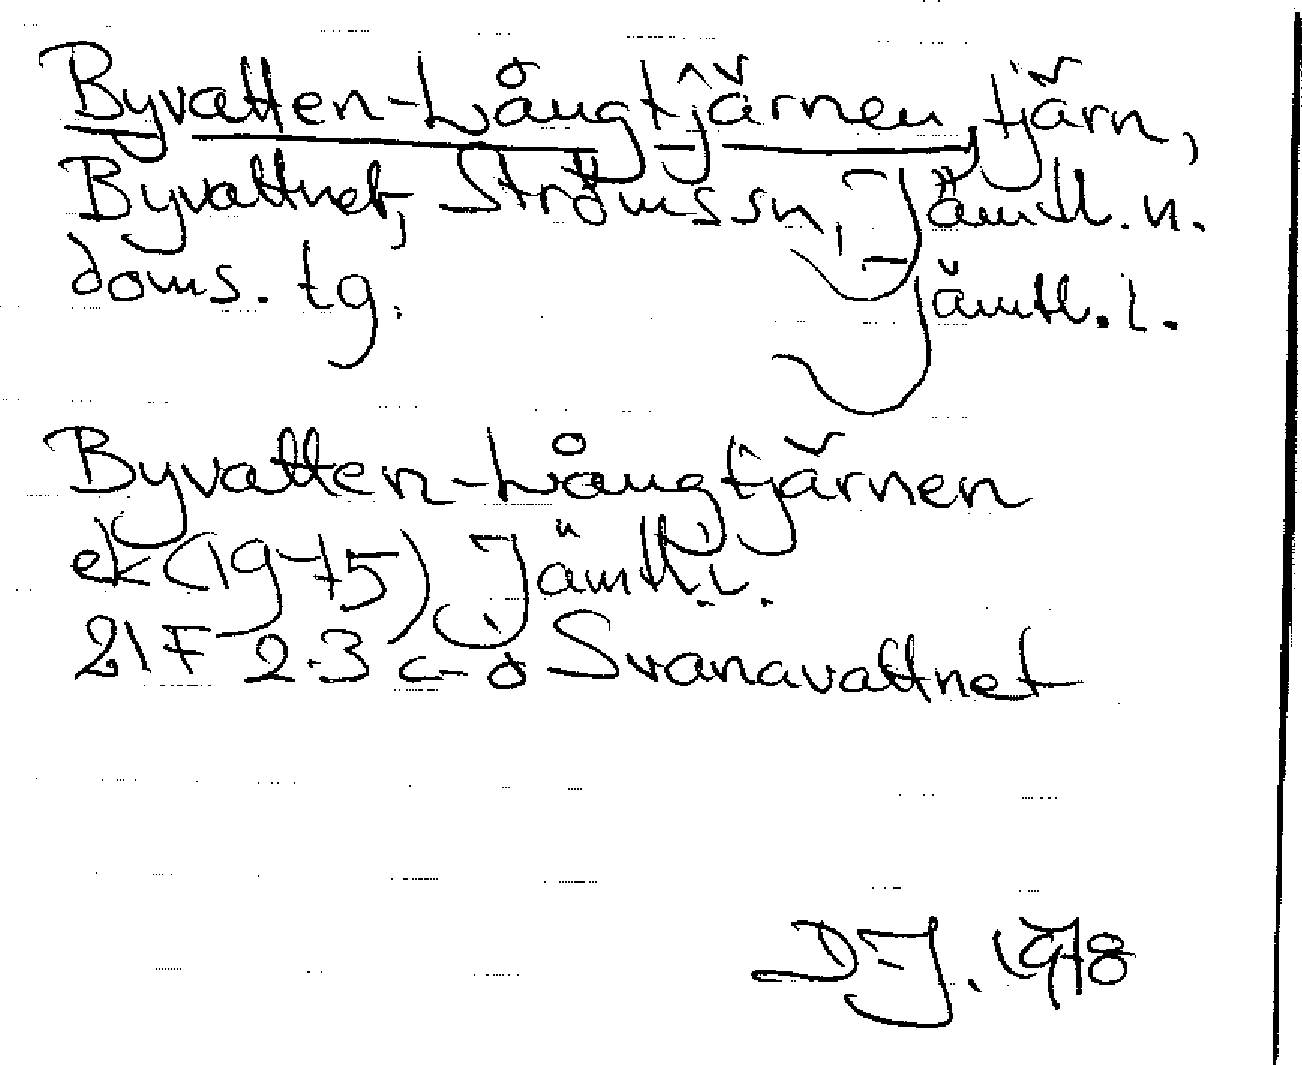 Byvatten-Långtjärnen, tjärn,
Byvattnet, Ströms sn, Jämtl. n.
doms. tg. Jämtl. l.
Byvatten-Långtjärnen
ek (1975) Jämtl. l.
21F 2-3 c-d Svanavattnet
DJ. 1978